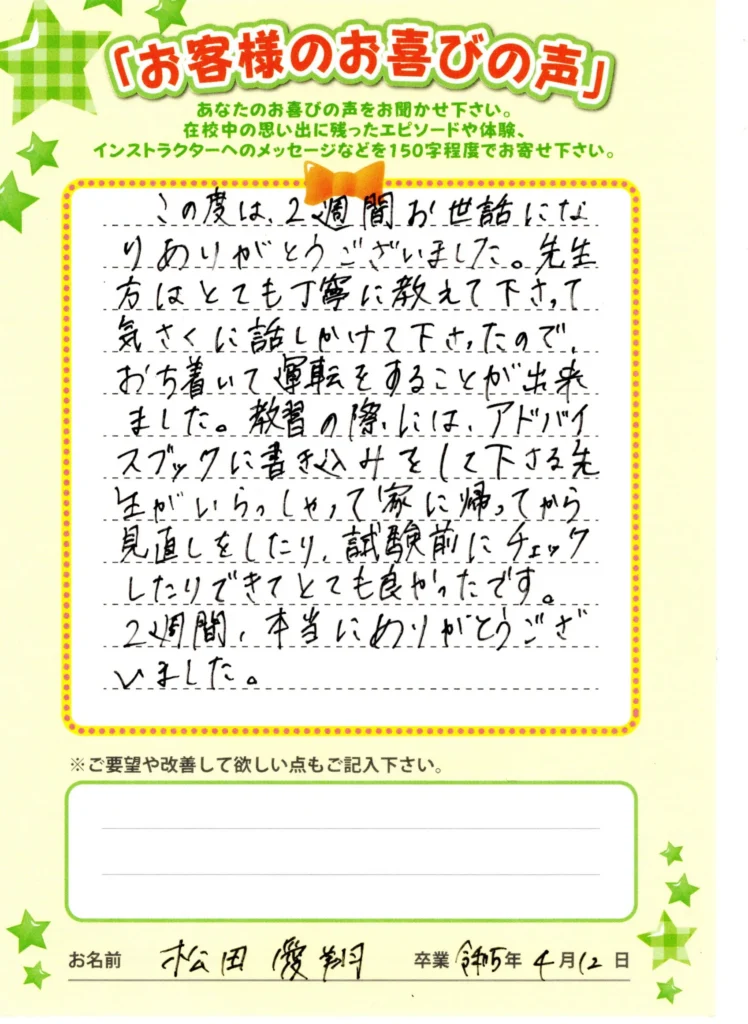 「お客様のお喜びの声」
あなたのお喜びの声をお聞かせ下さい。
在校中の思い出に残ったエピソードや体験、
インストラクターへのメッセージなどを150字程度でお寄せ下さい。
この度は、2週間お世話にな
りありがとうございました。先生
方はとても丁寧に教えて下さって
気さくに話しかけて下さったので、
おち着いて運転をすることが出来
ました。教習の際には、アドバイ
スブックに書き込みをして下さる先
生がいらっしゃって家に帰ってから
見直しをしたり、試験前にチェック
したりできてとても良かったです。
2週間、本当にありがとうござ
いました。
※ご要望や改善して欲しい点もご記入下さい。
お名前 松田 愛翔 卒業 令和5年 4月12日